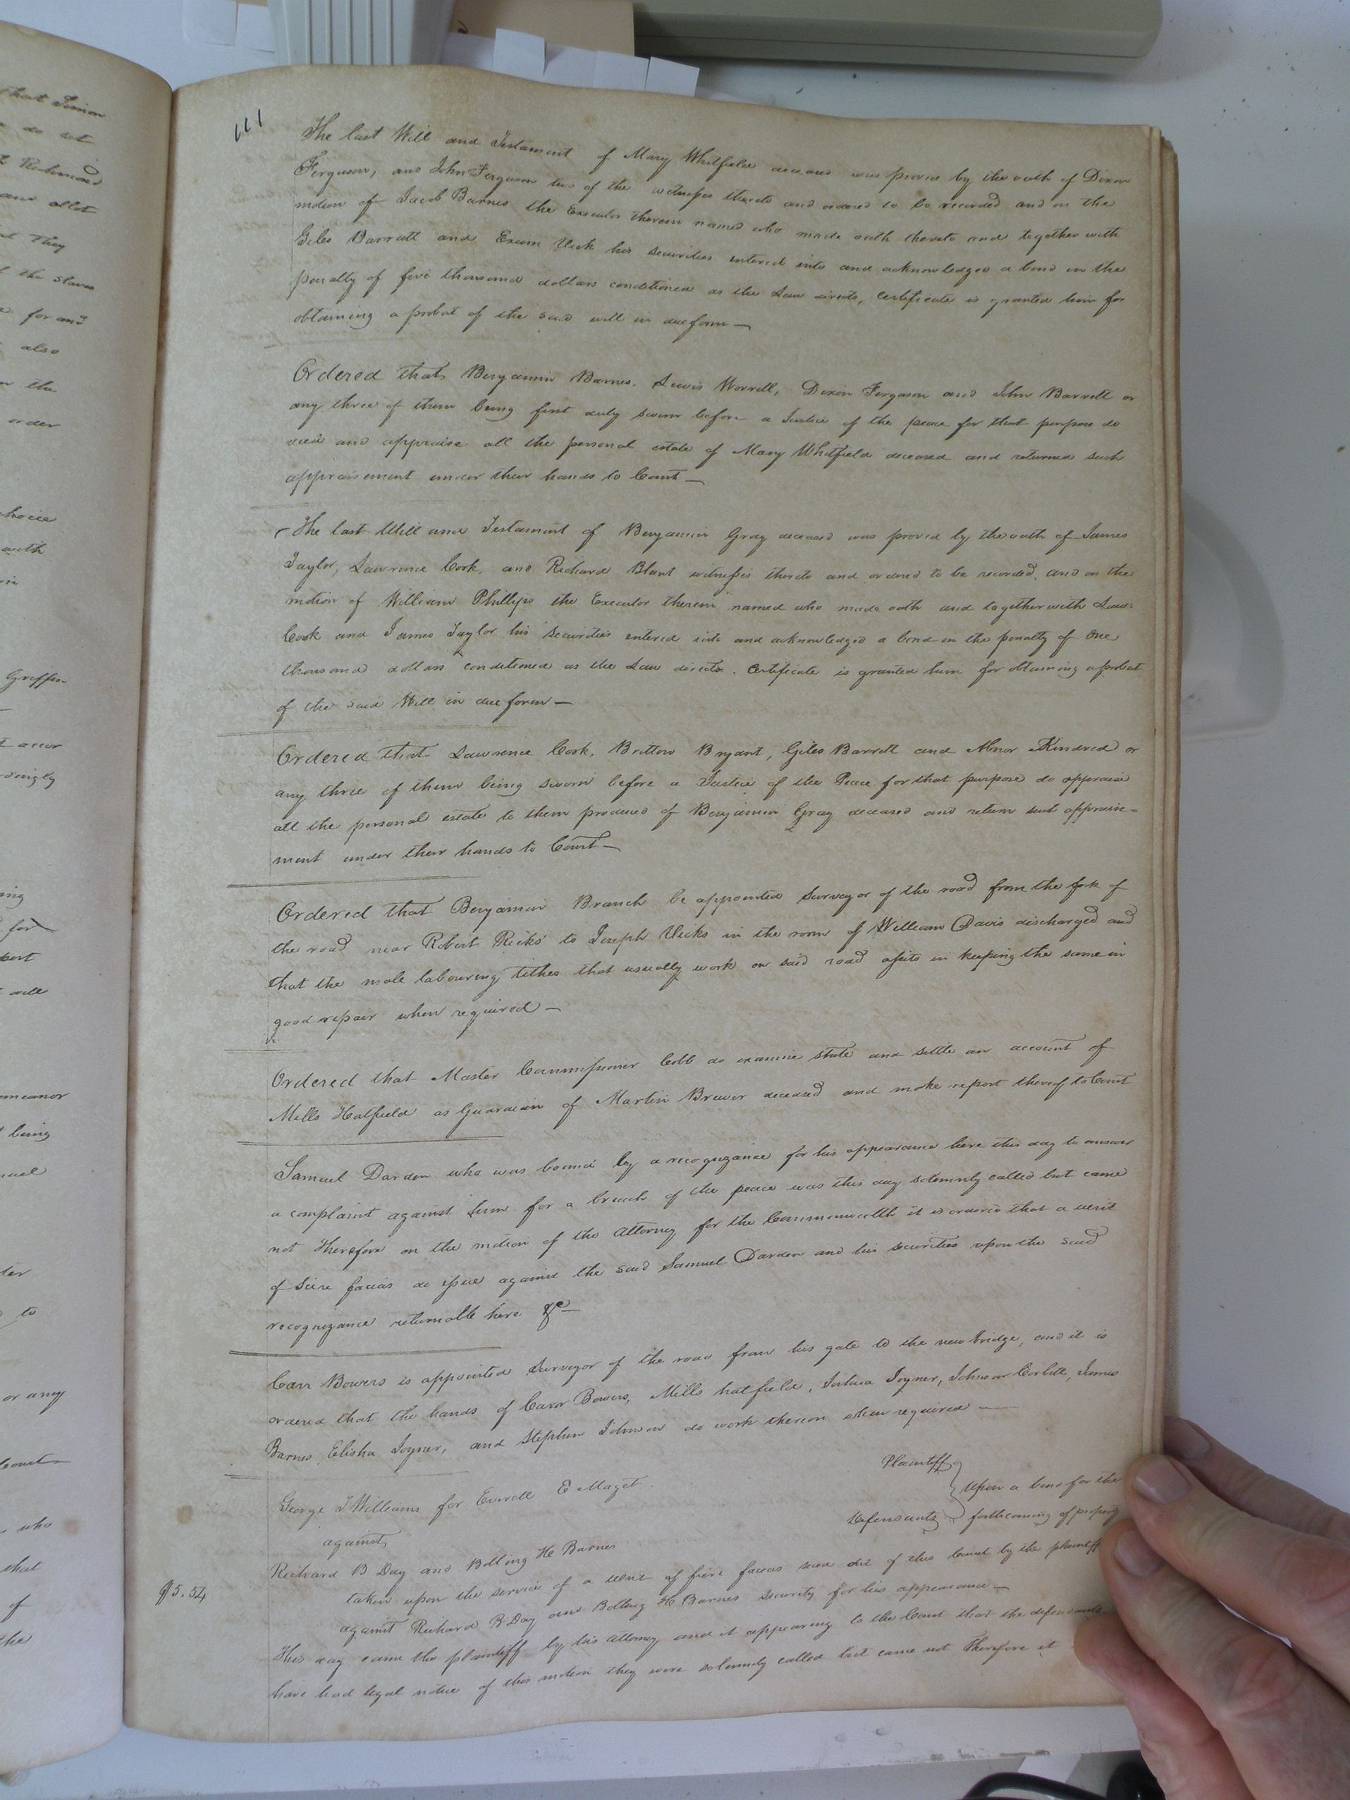 111
The last Will and Testament of Mary Whitfield deceased was proved by the oath of Dixon
Ferguson, and John Ferguson two of the witnesses thereto and ordered to be recorded and on the
motion of Jacob Barnes the Executor therein named who made oath thereto and together with
Giles Barrett and Exum Vick his securities entered into and acknowledged a bond in the
penalty of five thousand dollars conditioned as the Law directs, certificate is granted him for
obtaining a probat of the said will in due form —
Ordered that Benjamin Barnes, Lewis Worrell, Dixon Ferguson and John Barrett or
any three of them being first duly sworn before a Justice of the peace for that purpose do
view and appraise all the personal estate of Mary Whitfield deceased and returned such
appraisement under their hands to Court —
The last Will and Testament of Benjamin Gray deceased was proved by the oath of James
Taylor, Lawrence Cook, and Richard Blant witnesses thereto and ordered to be recorded, and on the
motion of William Phillips the Executor therein named who made oath and together with Law:
Cook and James Taylor his securities entered into and acknowledged a bond in the penalty of one
thousand dollars conditioned as the Law directs, certificate is granted him for obtaining a probat
of the said Will in due form —
Ordered that Lawrence Cook, Britton Bryant, Giles Barrett and Abnor Kindred or
any three of them being sworn before a Justice of the Peace for that purpose do appraise
all the personal estate to them produced of Benjamin Gray deceased and return such appraise-
ment under their hands to Court —
Ordered that Benjamin Branch be appointed surveyor of the road from the fork of
the road near Robert Ricks' to Joseph Vicks in the room of William Davis discharged and
that the male labouring tithes that usually work on said road assist in keeping the same in
good repair when required —
Ordered that Master Commissioner Cobb do examine state and settle an account of
Mills Hatfield as Guardian of Martin Brewer deceased and make report thereof to Court
Samuel Darden who was bound by a recognizance for his appearance here this day to answer
a complaint against him for a breach of the peace was this day solemnly called but came
not Therefore on the motion of the Attorney for the Commonwealth it is ordered that a writ
of Scire facias do issue against the said Samuel Darden and his securities upon the said
recognizance returnable here &c —
Carr Bowers is appointed surveyor of the road from his gate to the new bridge, and it is
ordered that the hands of Carr Bowers, Mills hatfield, Joshua Joyner, Johnson Corbitt, James
Barnes, Elisha Joyner, and Stephen Johnson do work thereon when required —
George T Williams for Everett E Maget Plaintiff
against Upon a bond for the
Richard B Day and Bolling H Barnes Defendants forthcoming of property
taken upon the service of a writ of fieri facias sued out of this Court by the plaintiff
against Richard B Day and Bolling H Barnes security for his appearance —
$5.54
This day came the plaintiff by his attorney and it appearing to the Court that the defendants
have had legal notice of this motion they were solemnly called but came not Therefore it